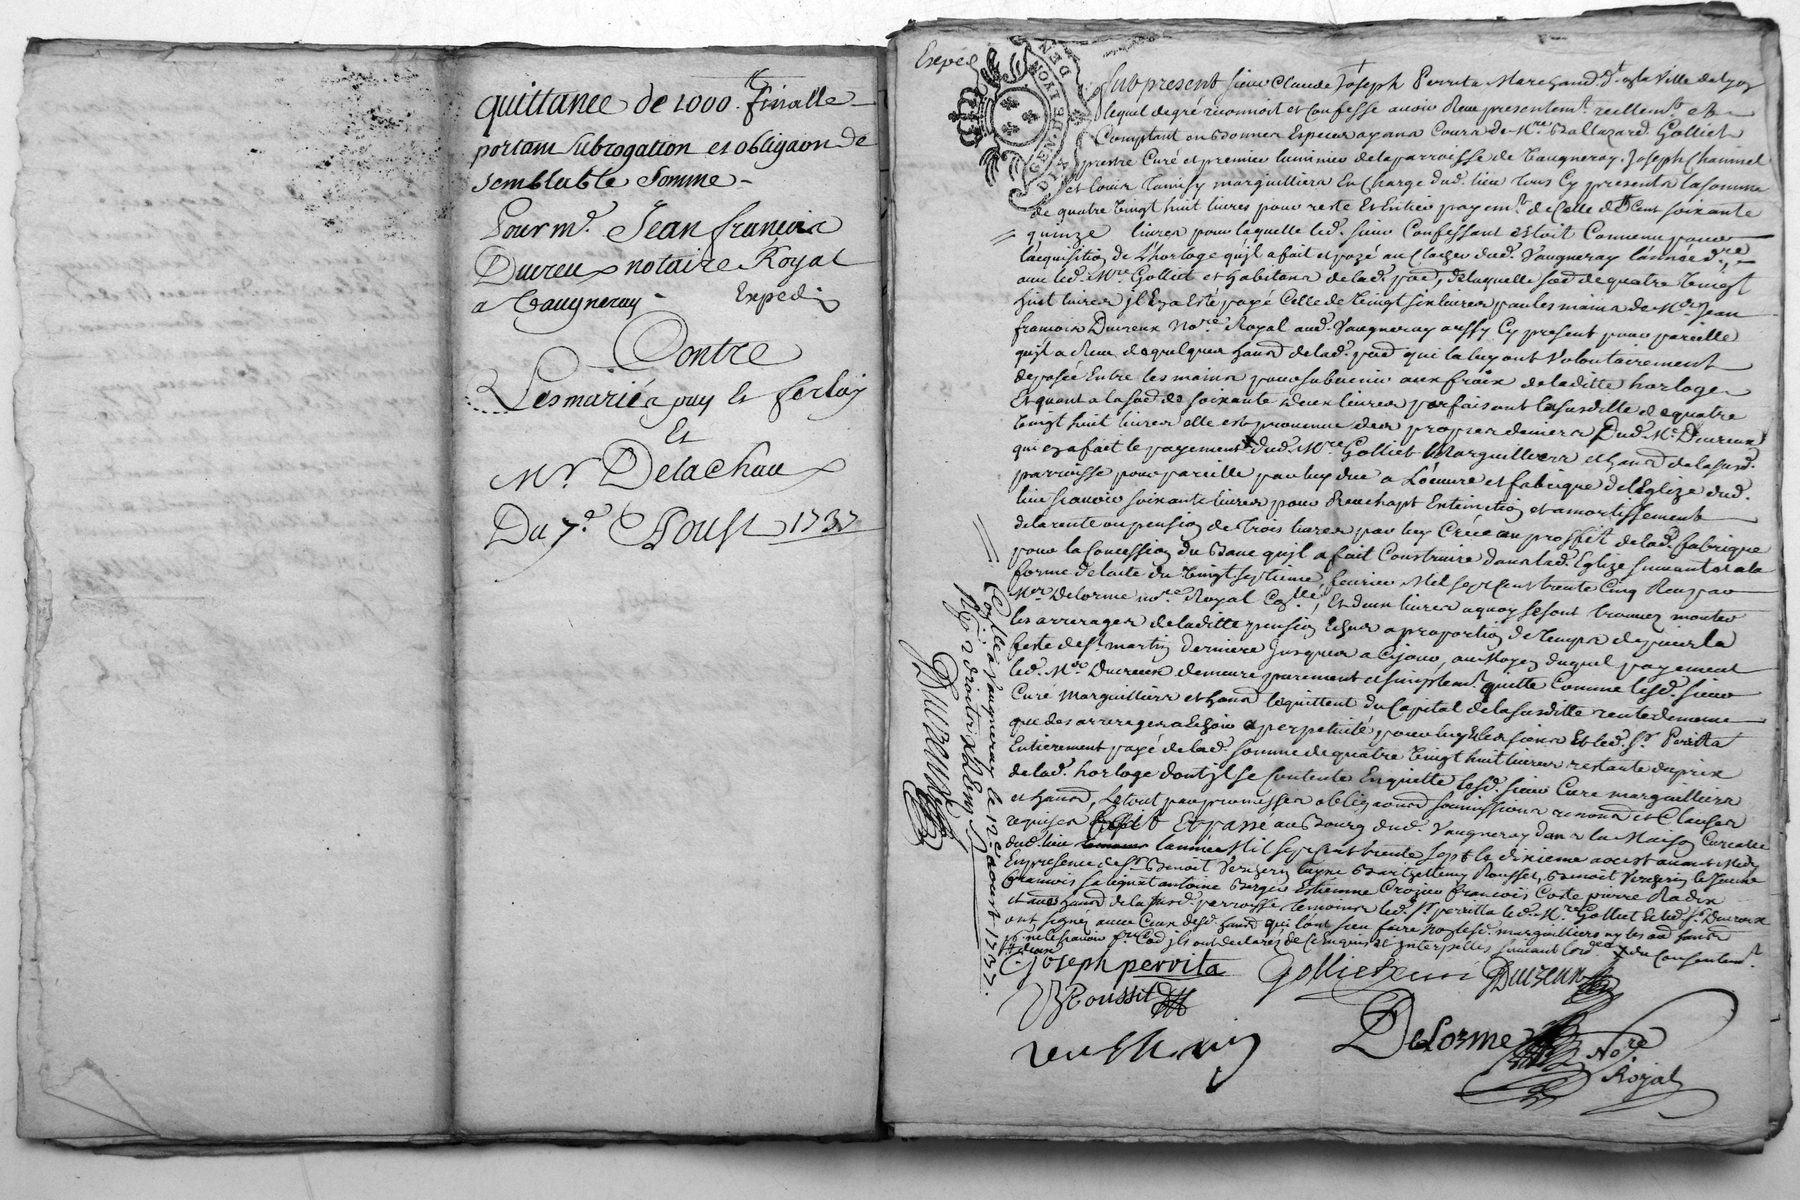 quittance de 1000.tt finalle
portant subrogation et obligaon de
semblable somme –
Pour me. Jean françois
Ducreux notaire Royal
a Vaugneray – Expedié
Contre
Les mariés puy et
Et
Mr. Delachau
Du 7.e Aoust 1737
Expedié
GEN. DE LYON
Fut present sieur Claude Joseph Perrita Marchand dt. en la Ville de Lyon
lequel de gré reconnoit et confesse avoir Reçu presentemt. reellemt. et
Comptant en bonnes Especes ayans Cours de Mre. Baltazard Golliet
prestre Curé et premier luminier de la parroisse de Vaugneray, Joseph Chammel
et louis marguilliers En charge dud. lieu tous Cy presents la somme
de quatre Vingt huit livres pour reste et Entier payemt. de Celle de Cent soixante
quinze livres pour laquelle led. sieur Confessant Estoit Convenu pour
lacquisition de L'horloge qu'il a fait et posé au Clocher dud. Vaugneray l'année dre.
avec led. Mre Golliet et Habitans de lad. parr. de laquelle so.e de quatre Vingt
huit livres il En a Esté payé Celle de Vingt six livres par les mains de Me. Jean
francois Ducreux Nore. Royal aud. Vaugneray aussy Cy present pour pareille
qu'il a Reçue de quelques hans. de lad. parr. qui la luy ont Volontairement
deposée Entre les mains pour subvenir aux fraix de laditte horloge
Et quant a la so.e de soixante deux livres parfaisant la susditte de quatre
Vingt huit livres elle est provenue des propres deniers Dud. Me. Ducreux
qui en a fait le payement dud. Mre Golliet Marguilliers et hans. de la susd.
parroisse pour pareille par luy due a L'oeuvre et fabrique de l'Eglize dud.
lieu scavoir soixante livres pour Reachapt Extinction et amortissement
de la rente ou pension de trois livres par luy Créée au proffit de lad. fabrique
pour la Concession du Banc qu'il a fait Construire dans lad. Eglize suivant et a la
forme de l'acte du Vingt septieme fevrier Mil sept cent trente Cinq Reçu par
Me. Delorme nore Royal Coll.é, Et deux livres a quoy se sont trouvez monter
les arrerages de laditte pension Echus a proportion de temps depuis la
feste de St. martin derniere jusques a Cejour, au Moyen duquel payement
led. Me Ducreux demeure purement et simplemt. quitte Comme lesd. sieur
Curé Marguilliers et hans. le quittent du Capital de la susditte rente demême
que des arrerages a Echoir a perpetuité pour luy et les siens Et led. Sr. Perritta
Entierement payé de lad. somme de quatre Vingt huit livres restante du prix
de lad. horloge dont il se Contente En quitte lesd. sieur Curé marguilliers
et hans., Le tout par promesses obligaons soumissions renons. et Clauses
requises Et passé au Bourg dud. Vaugneray dans la Maison Curialle
dud. lieu lannée Mil sept cent trente sept le dixieme aoust avant Midy
En presence de Sr Benoît Verzieu layné Barthellemy Rousset, Benoît Verzieu le jeune
francois antoine Bergier Estienne Crozier francois Coste pierre Radix
et autres hans. de la susd. parroisse temoins led. Sr. perritta led. Mre Golliet et led. Sr. Ducreux
ont signé avec Ceux desd. hans. qui l'ont sceu faire non lesd. marguilliers ny les aud. hans.
p.r ne le scavoir ils ont declarés de ce Enquis et interpellés suivant lord.ce du Consentemt.
Joseph perrita Golliet curé Ducreux
B Roussit
Delorme Nore
Royal
Collé. a Vaugneray le 12e. aoust 1737.